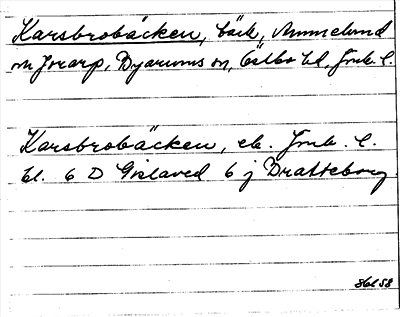 Karsbrobäcken, bäck, Annelund
o. Jorarp, Byarums sn, Östbo hd, Jönk. l.
Karsbrobäcken, ek. Jönk. l.
bl. 6 D Gislaved 6 j Bratteborg.